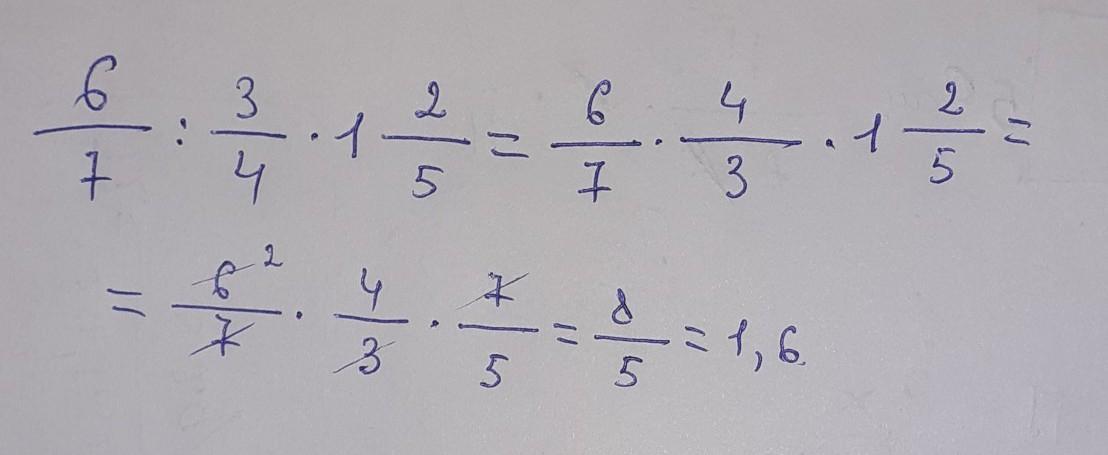 6/7 : 3/4 · 1 2/5 = 6/7 · 4/3 · 1 2/5 =
= 6 2/7 · 4/3 · 7/5 = 8/5 = 1,6